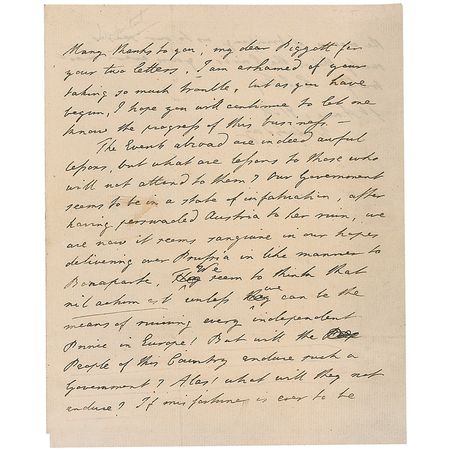 Many thanks to you, my dear Piggott for
your two letters, I am ashamed of your
taking so much trouble, but as you have
begun, I hope you will continue to let me
know the progress of this business —
The Events abroad are indeed awful
lessons, but what are lessons to those who
will not attend to them? Our Government
seems to be in a state of infatuation, after
having perswaded Austria to her ruin, we
are now it seems sanguine in our hopes
delivering over Prussia in like manner to
Bonaparte, We seem to think that
nil actum est unless we can be the
means of ruining every independent
Power in Europe! But will the
People of this Country endure such a
Government? Alas! what will they not
endure? If misfortune is ever to be